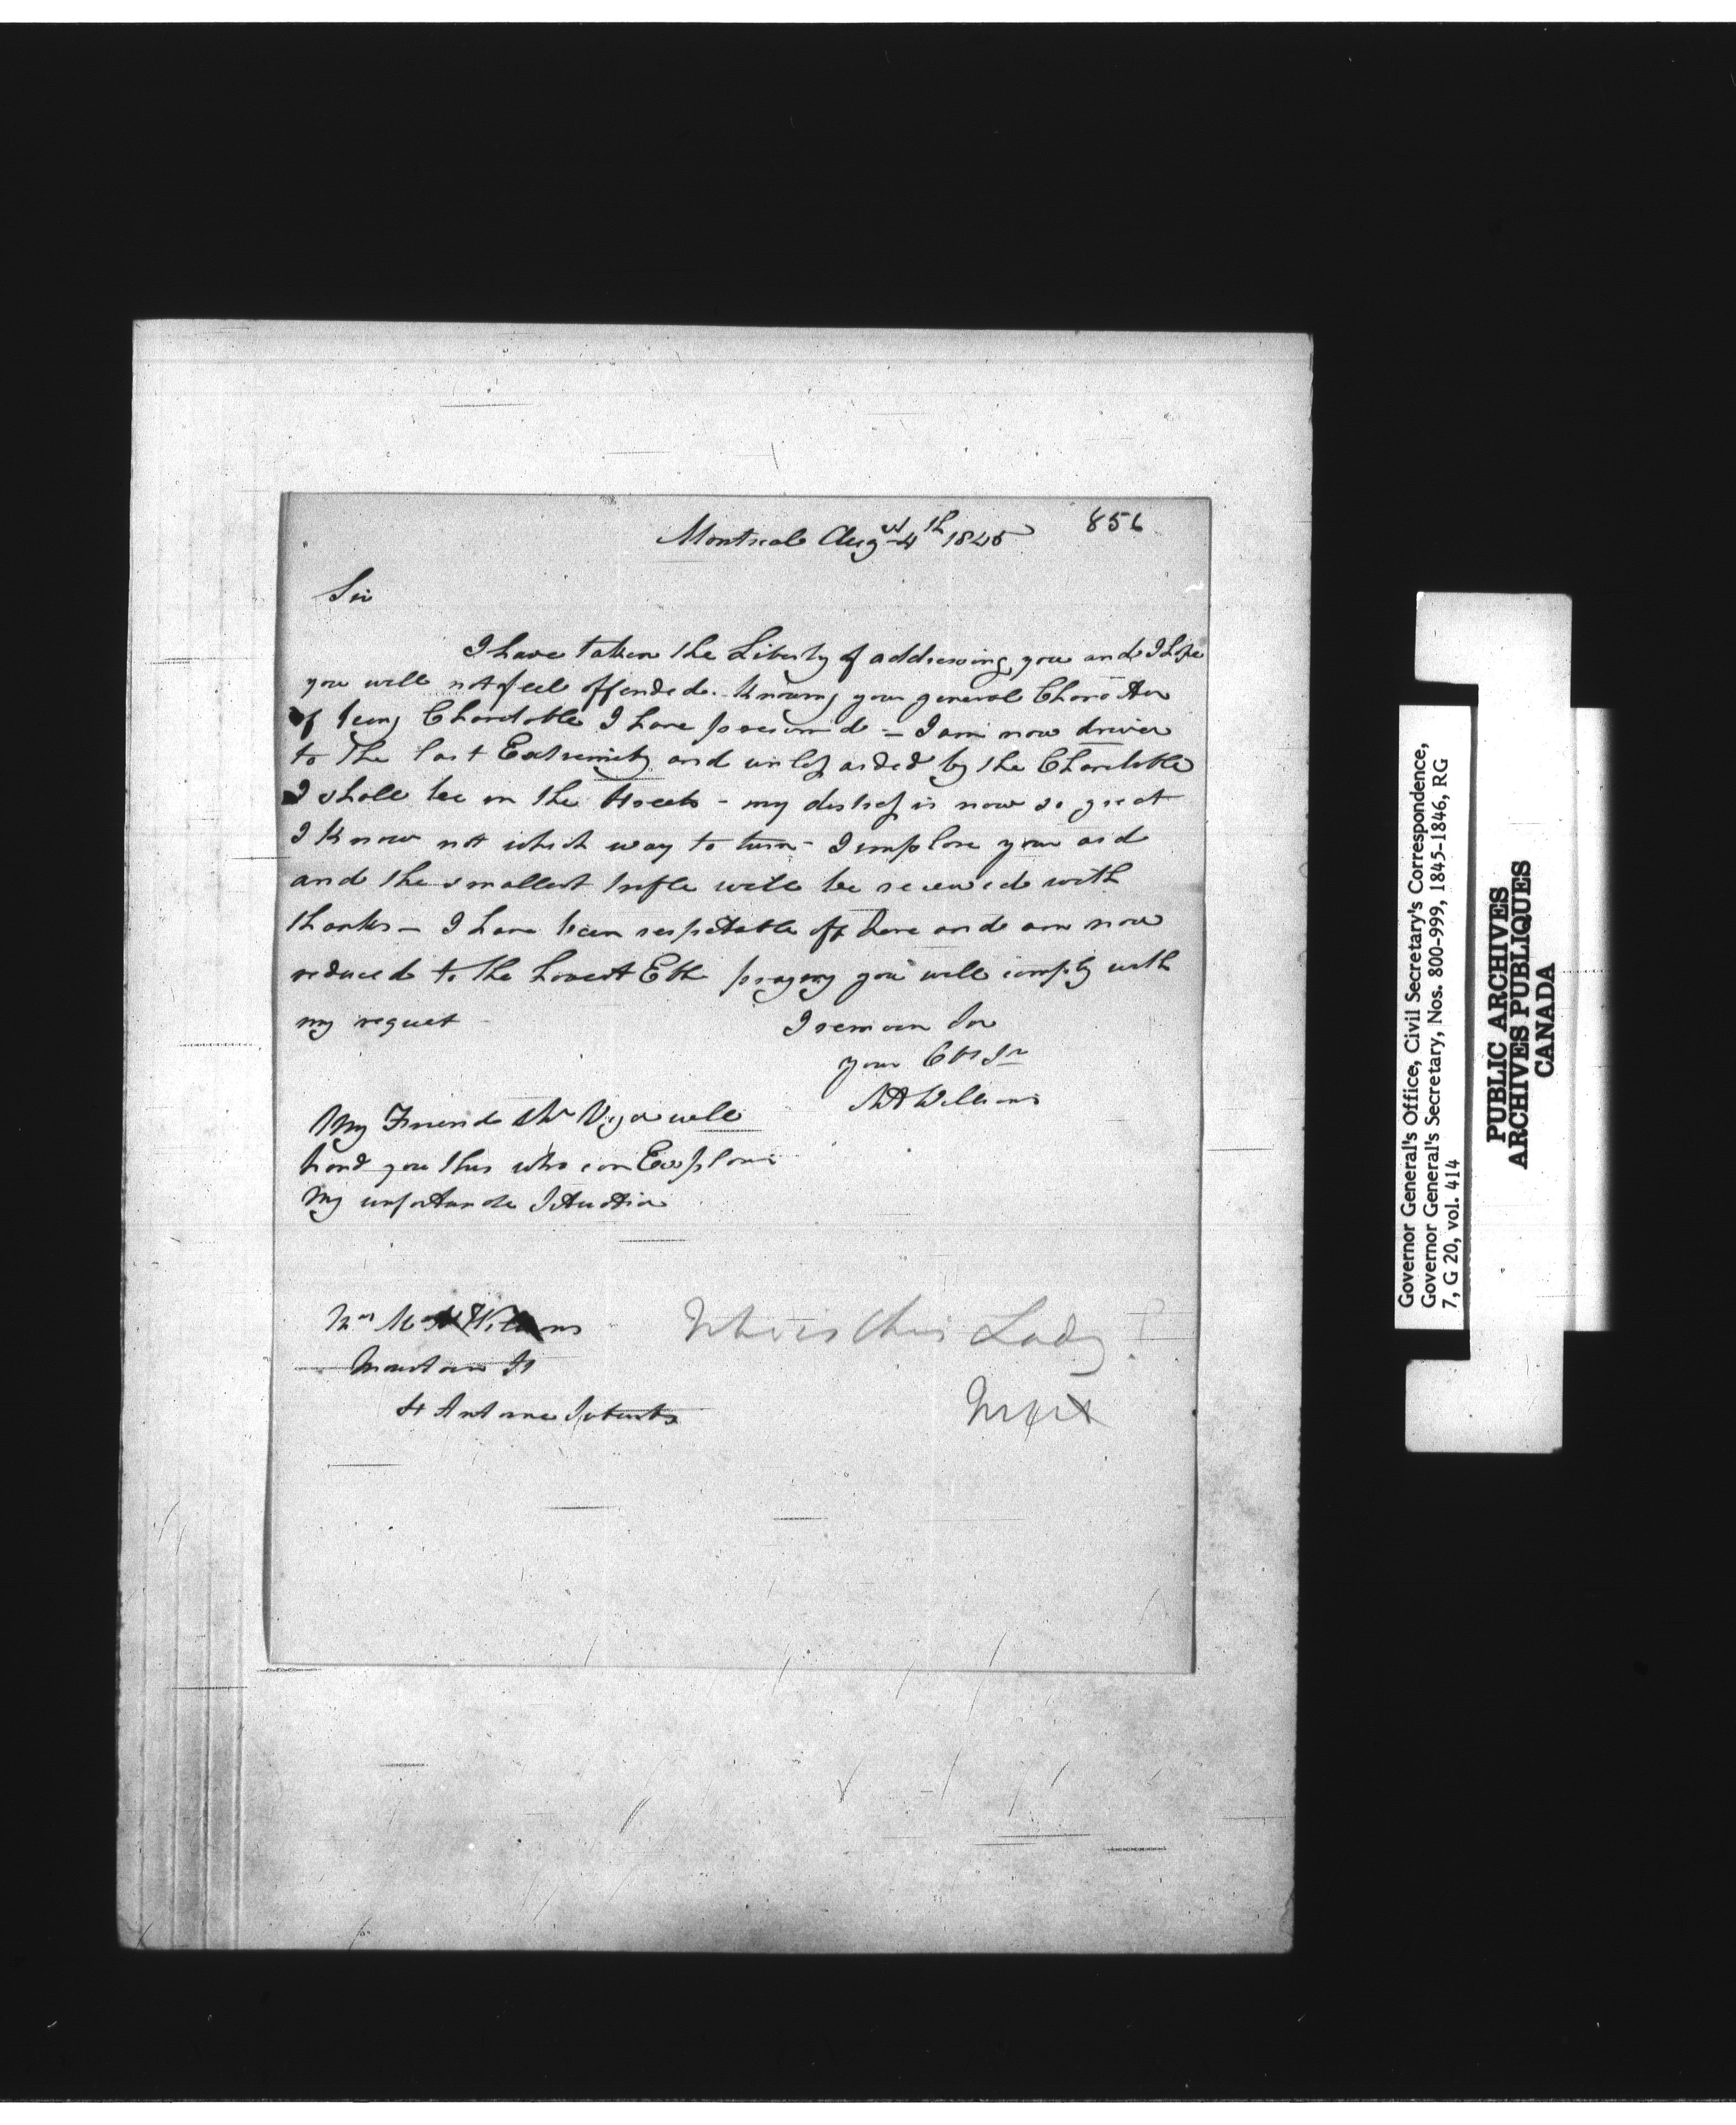 856
Montreal Augst 4th 1845
Sir
I have taken the Liberty of addressing you and I hope
you will not feel offended. Knowing your general Character
of being Charitable I have presumed - I am now driven
to the last Extremity and unless aided by the Charitable
I shall be in the streets - my distress is now so great
I Know not which way to turn - I implore your aid
and the smallest trifle will be received with
thanks - I have been respectable off here and am now
reduced to the Lowest Ebb praying you will comply with
my request
I remain Sir
your Obt Sr
M A Williams
My Friend Mr will
hand you this who can Explain
My unfortunate Situation
Mrs M A Williams
Mountain St
St Antoine Suburbs
Who is this Lady?
Governor General's Office, Civil Secretary's Correspondence,
Governor General's Secretary, Nos. 800-999, 1845-1846, RG
7, G 20, vol. 414
PUBLIC ARCHIVES
ARCHIVES PUBLIQUES
CANADA